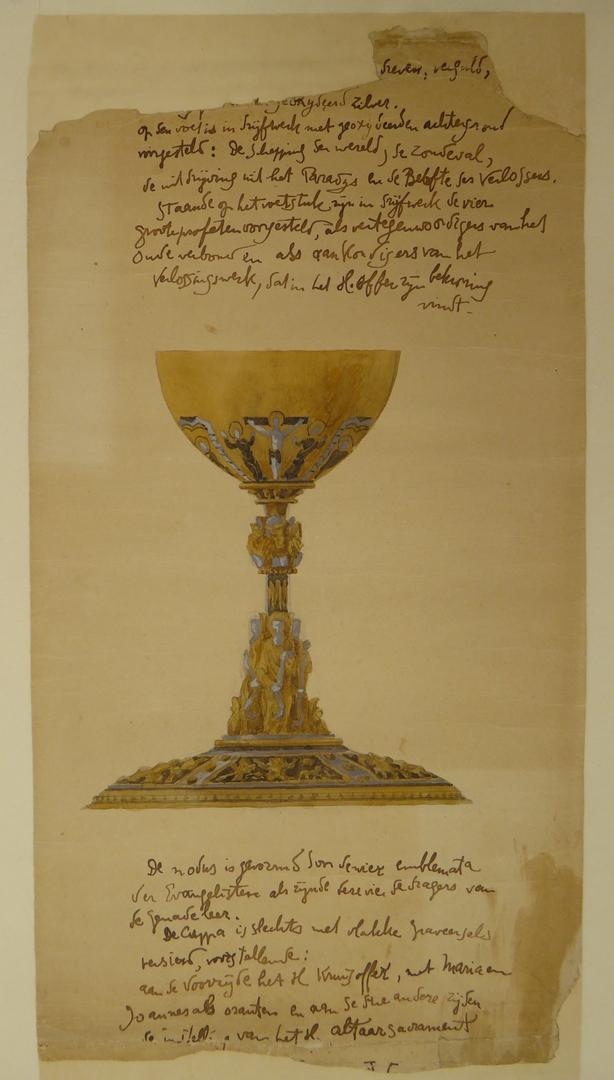 dreven, verguld,
geoxydeerd zilver.
op den voet is in drijfwerk met geoxydeerden achtergrond
voorgesteld: De schepping der wereld, de zondeval,
de uitdrijving uit het Paradys en de Belofte des Verlossers.
Staande op het voetstuk zijn in drijfwerk de vier
groote profeten voorgesteld, als vertegenwoordigers van het
Oude verbond en als aankondigers van het
Verlossingswerk, dat in het H. Offer zijn bekroning
vindt.
De nodus is gevormd door de vier emblemata
der Evangelisten als zijnde deze vier de dragers van
de genadeleer.
De Cuppa is slechts met vlakke graveersels
versierd, voorstellende:
aan de voorzijde het H Kruisoffer, met Maria en
Joannes als oranten en aan de drie andere zijden
de instelling van het H. altaarsacrament